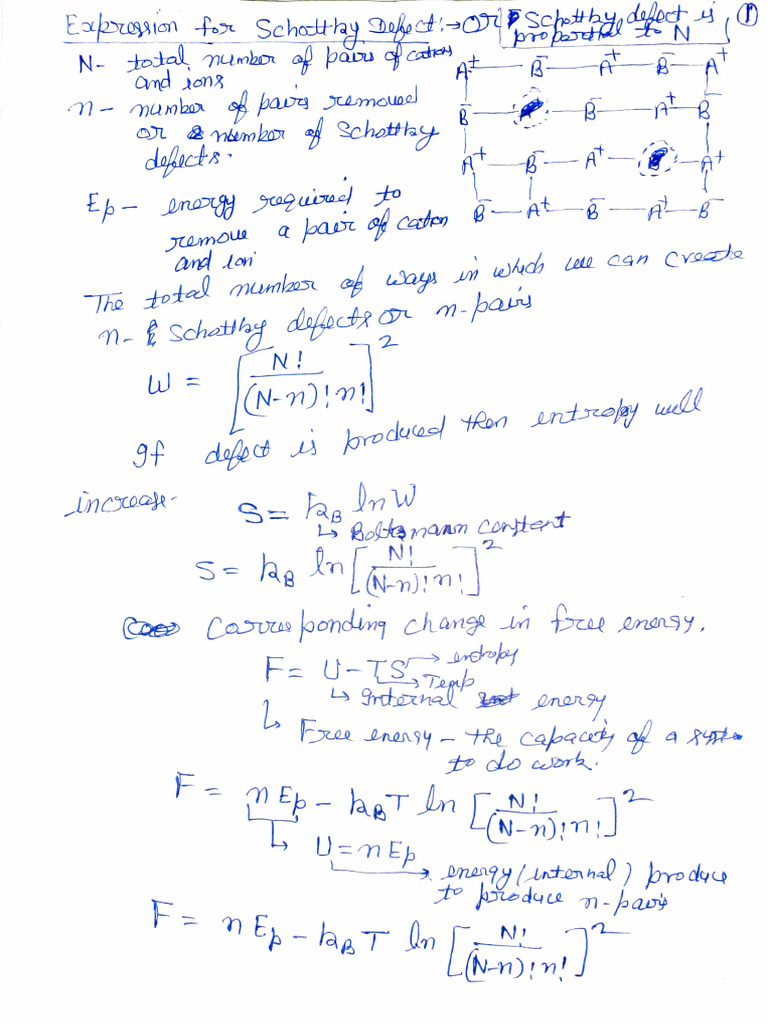 Expression for Schottky Defect:→ OR Schottky defect is proportional to N
①
N- total number of pairs of cations and ions
n- number of pairs removed or number of Schottky defects.
Ep - energy required to remove a pair of cation and ion
A+ — B- — A+ — B- — A+
B- — B- — A+ — B-
A+ — B- — A+ — A+
B- — A+ — B- — A+ — B-
The total number of ways in which we can create
n- Schottky defects or n-pairs
W = [N!/(N-n)!n!]²
If defect is produced then entropy will
increase-
S = kB ln W
↳ Boltzmann constant
S = kB ln [N!/(N-n)!n!]²
Corresponding change in free energy.
F = U - TS → entropy
→ Temp
↳ Internal energy
↳ Free energy - the capacity of a
to do work.
F = nEp - kBT ln [N!/(N-n)!n!]²
↳ U = nEp
→ energy (internal) produce
to produce n-pairs
F = nEp - kBT ln [N!/(N-n)!n!]²